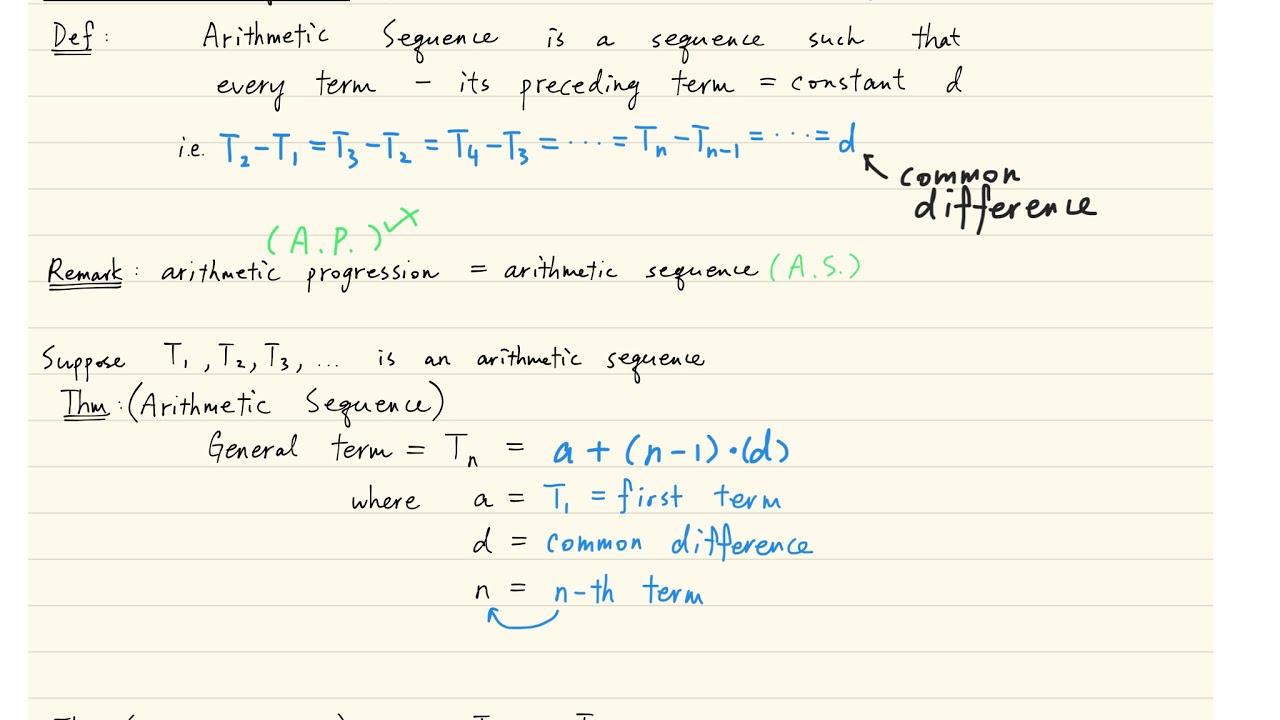 Def : Arithmetic Sequence is a sequence such that
every term - its preceding term = constant d
i.e. T₂-T₁ = T₃-T₂ = T₄-T₃ = ⋯ = Tₙ-Tₙ₋₁ = ⋯ = d
common
difference
(A.P.)
Remark : arithmetic progression = arithmetic sequence (A.S.)
Suppose T₁, T₂, T₃, ... is an arithmetic sequence
Thm : (Arithmetic Sequence)
General term = Tₙ = a + (n-1)·(d)
where a = T₁ = first term
d = common difference
n = n-th term